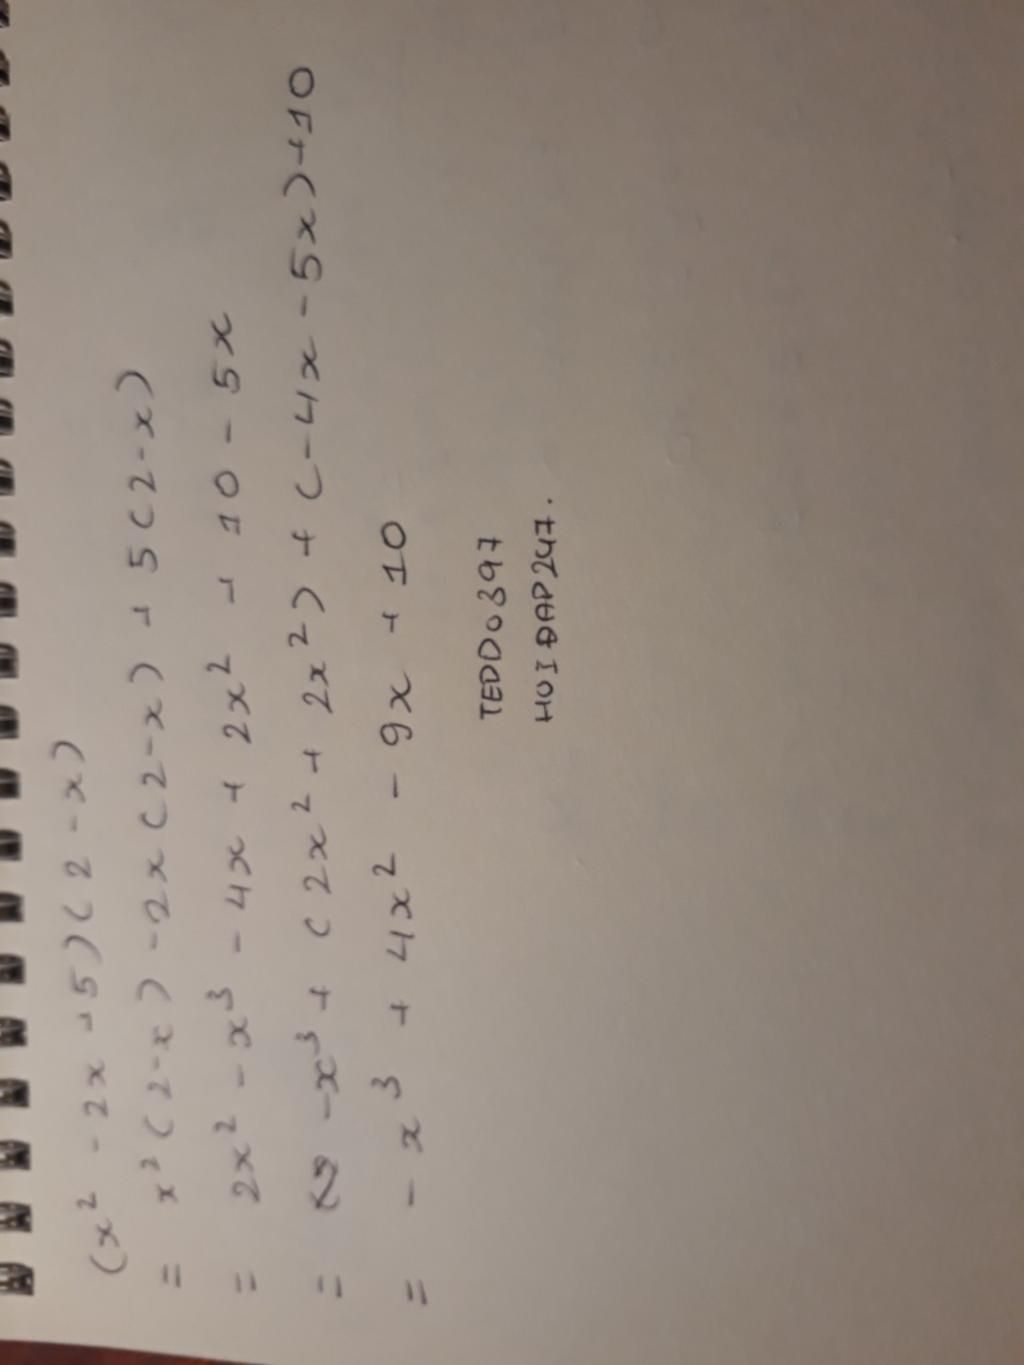 (x² - 2x + 5)(2 - x)
= x²(2-x) - 2x(2-x) + 5(2-x)
= 2x² - x³ - 4x + 2x² + 10 - 5x
= -x³ + (2x² + 2x²) + (-4x - 5x) + 10
= -x³ + 4x² - 9x + 10
TEDDO397
HOIĐAP247.